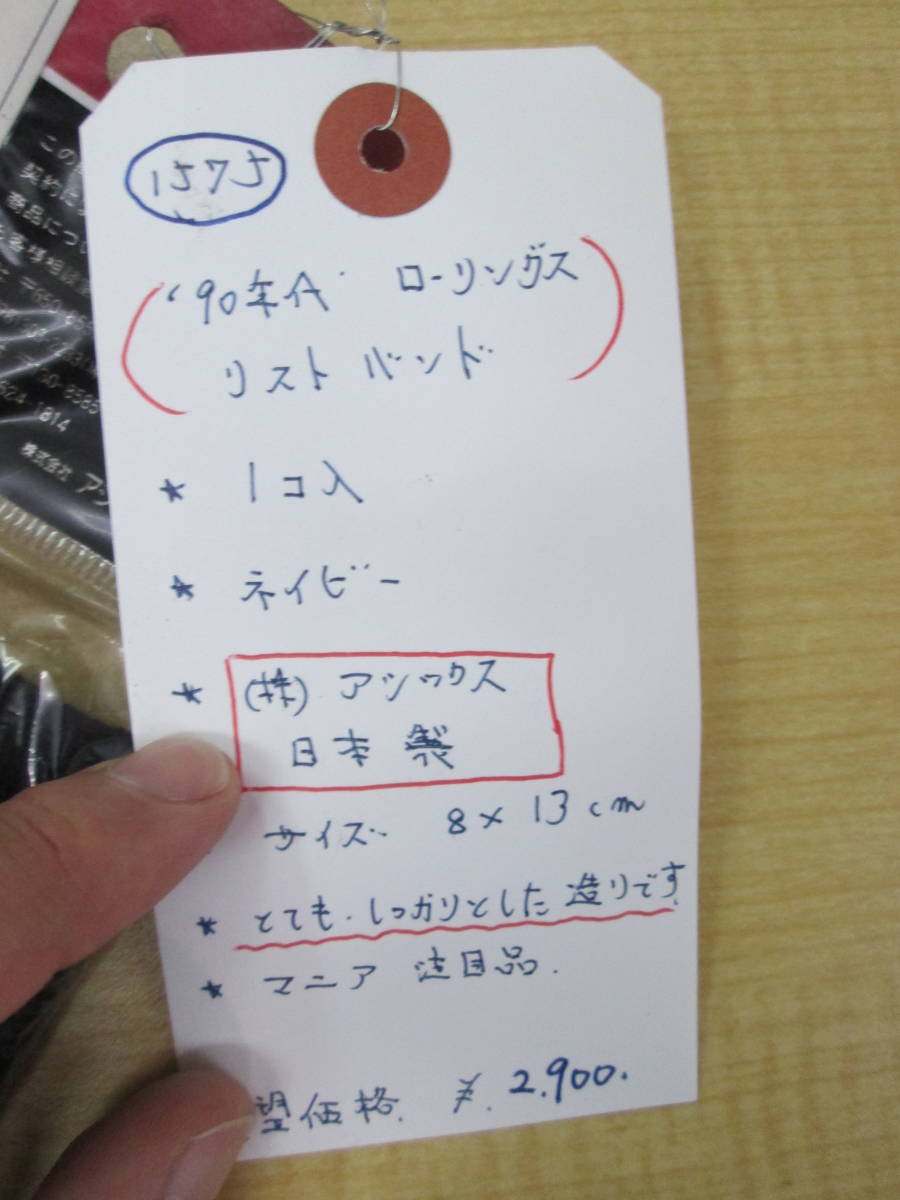 1575
'90年代 ローリングス
リストバンド
* 1コ入
* ネイビー
* (株) アシックス
日本製
サイズ 8×13cm
* とても.しっかりとした造りです.
* マニア 注目品.
望価格. ¥.2.900.
この
契約に
商品につい
814
株式会社 アシ